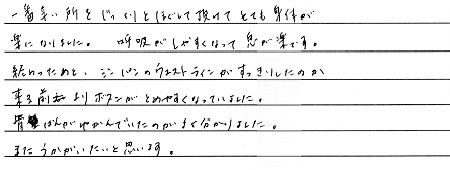 一番辛い所をじっくりとほぐして頂けてとても身体が
楽になりました。 呼吸がしやすくなって息が楽です。
終わったあと、ジーパンのウエストラインがすっきりしたのか
来る前よりボタンがとめやすくなっていました。
骨ばんがゆがんでいたのがよく分かりました。
またうかがいたいと思います。